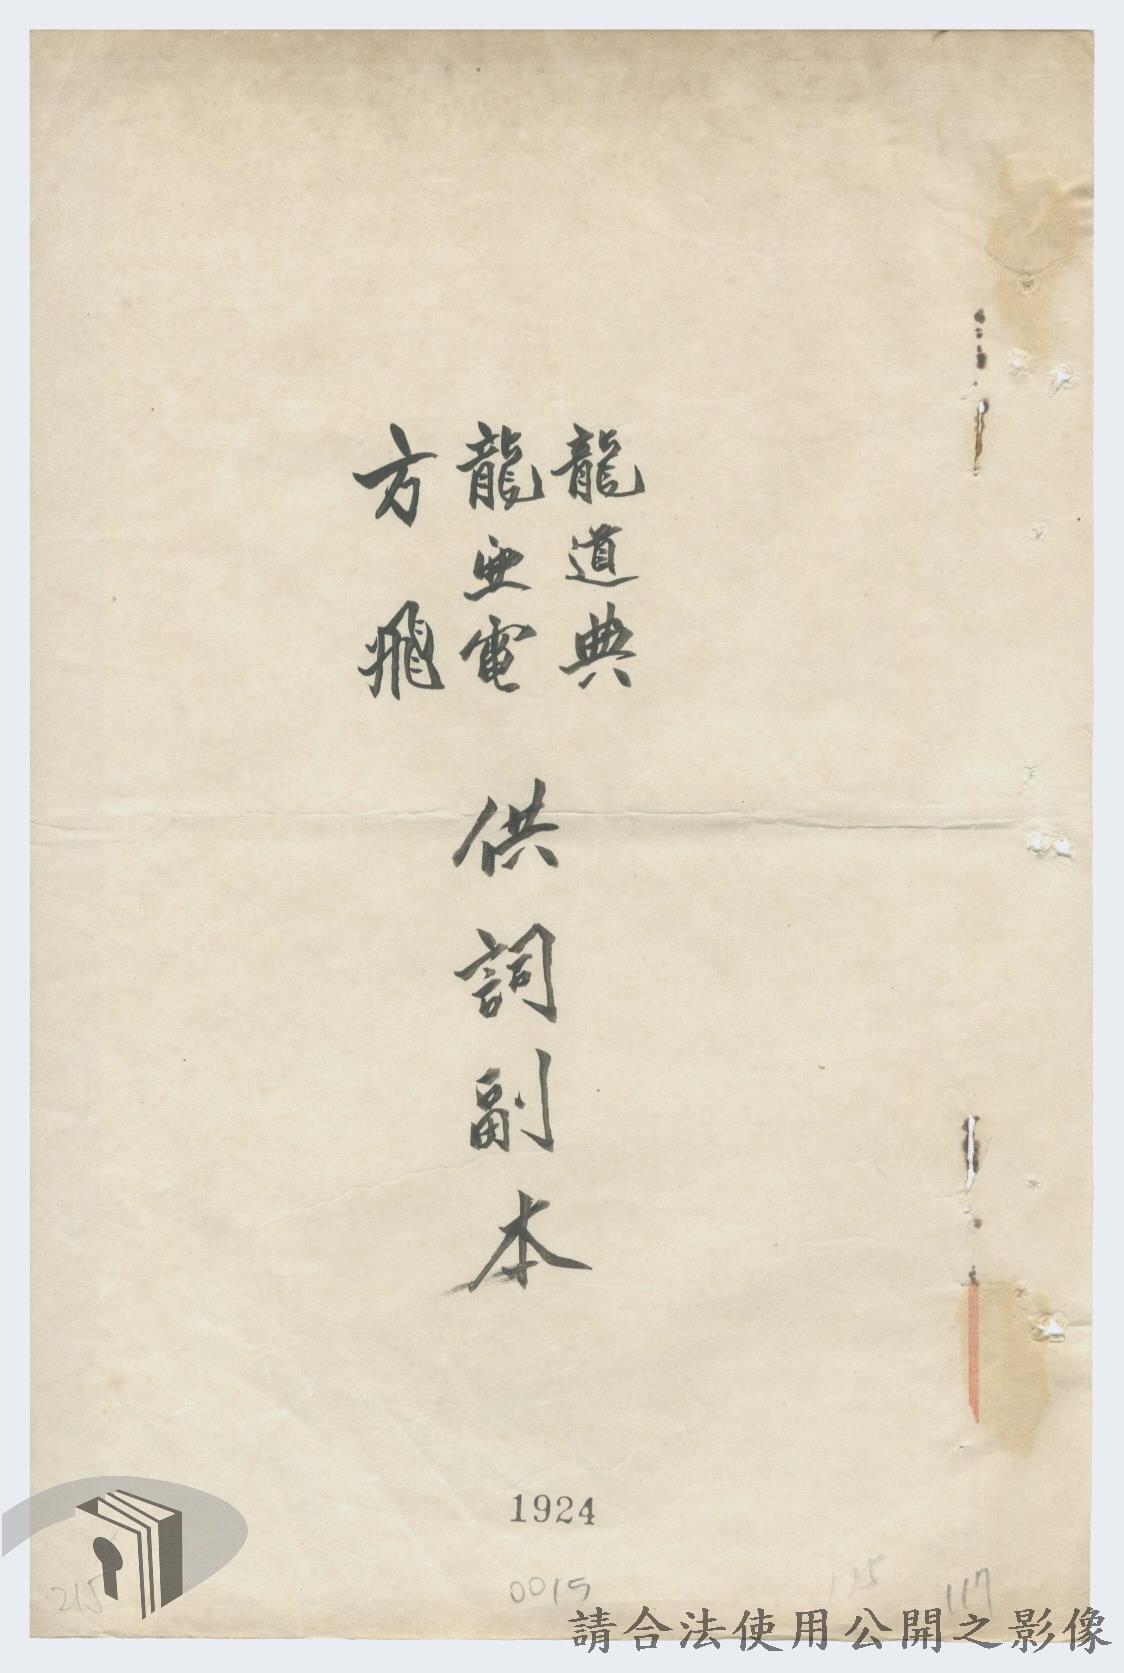 龍道典
龍亜電
方飛
供詞副本
1924
0015
215
135
117
請合法使用公開之影像